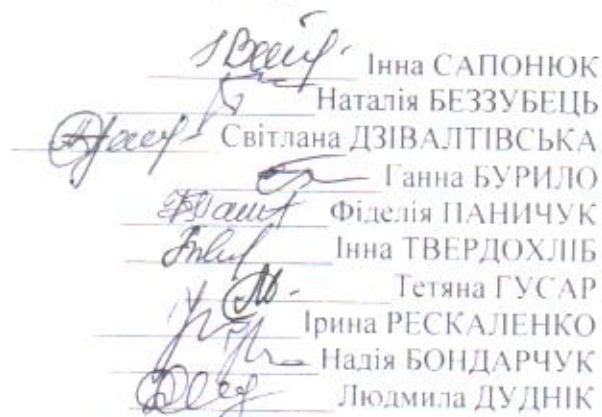 Інна САПОНЮК
Наталія БЕЗЗУБЕЦЬ
Світлана ДЗІВАЛТІВСЬКА
Ганна БУРИЛО
Фіделія ПАНИЧУК
Інна ТВЕРДОХЛІБ
Тетяна ГУСАР
Ірина РЕСКАЛЕНКО
Надія БОНДАРЧУК
Людмила ДУДНІК